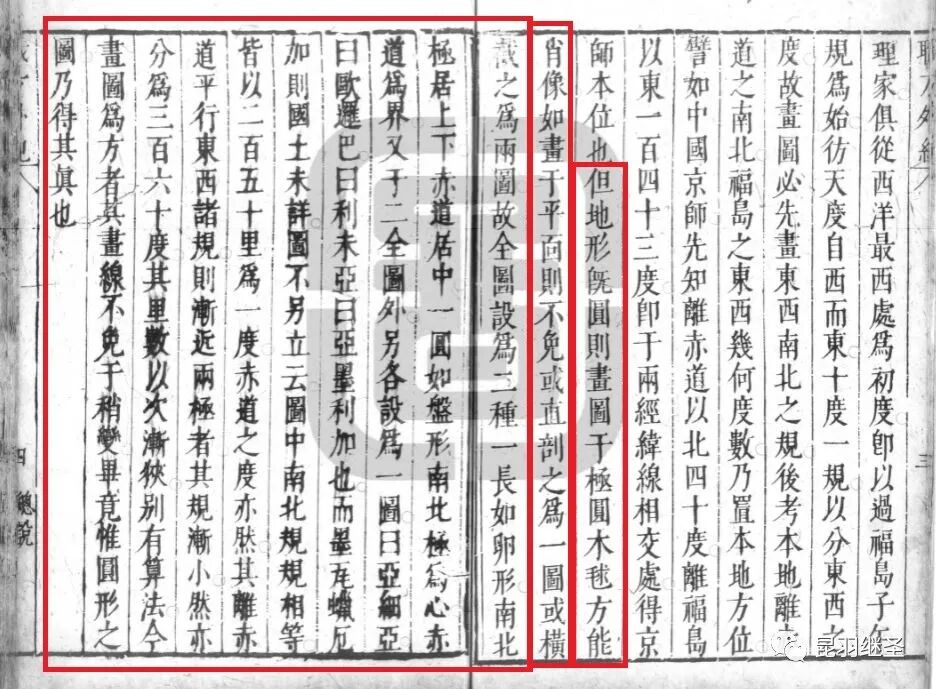 理家俱從西洋最西處爲初度卽以過福島子午
規爲始彷天度自西而東十度一規以分東西之
度故畫圖必先畫東西南北之規後考本地離赤
道之南北福島之東西幾何度數乃置本地方位
譬如中國京師先知離赤道以北四十度離福島
以東一百四十三度卽于兩經緯線相交處得京
師本位也但地形旣圓則畫圖于極圓木毬方能
肖像如畫于平面則不免或直剖之爲一圖或橫
截之爲兩圖故全圖設爲二種一長如卵形南北
極居上下赤道居中一圓如盤形南北極爲心赤
道爲界又于二全圖外另各設爲一圖曰亞細亞
曰歐邏巴曰利未亞曰亞墨利加也而墨瓦蠟尼
加則國土未詳圖不另立云圖中南北規規相等
皆以二百五十里爲一度赤道之度亦然其離赤
道平行東西諸規則漸近兩極者其規漸小然亦
分爲三百六十度其里數以次漸狹別有算法今
畫圖爲方者其畫線不免于稍變畢竟惟圓形之
圖乃得其眞也
總說
四
昆羽继圣